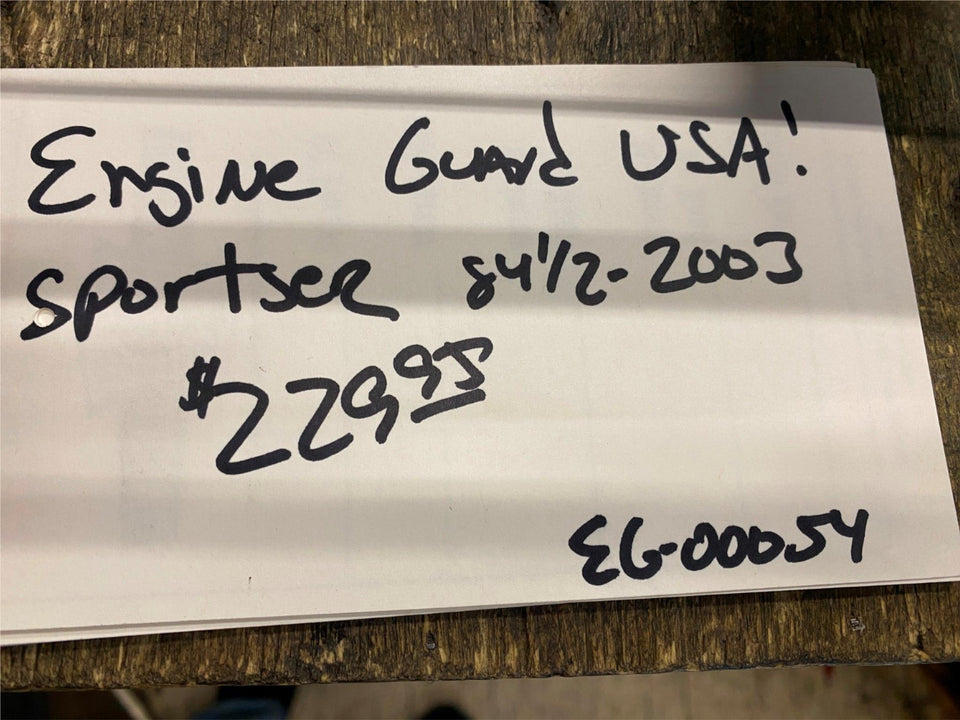 Engine Guard USA!
Sportser 84 1/2-2003
$229.95
EG-00054